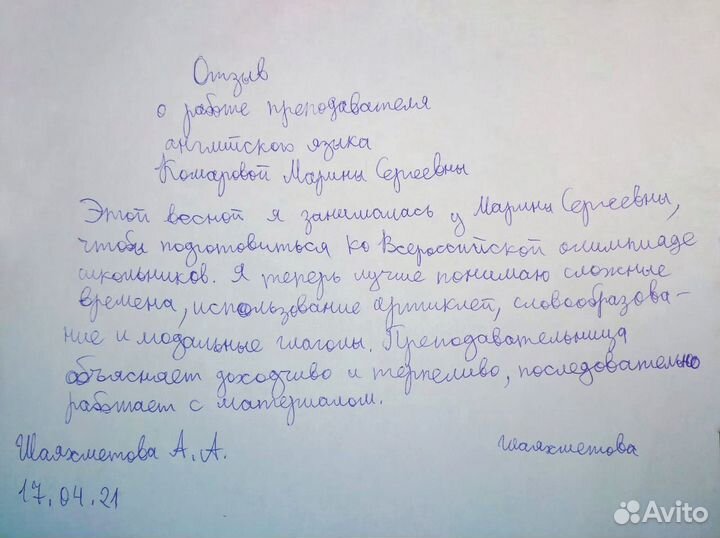 Отзыв
о работе преподавателя
английского языка
Комаровой Марины Сергеевны
Этой весной я занималась у Марины Сергеевны,
чтобы подготовиться ко Всероссийской олимпиаде
школьников. Я теперь лучше понимаю сложные
времена, использование артиклей, словообразова-
ние и модальные глаголы. Преподавательница
объясняет доходчиво и терпеливо, последовательно
работает с материалом.
Шаяхметова А.А. шаяхметова
17.04.21
Avito